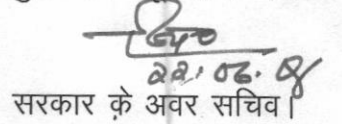 22.06.
सरकार के अवर सचिव।